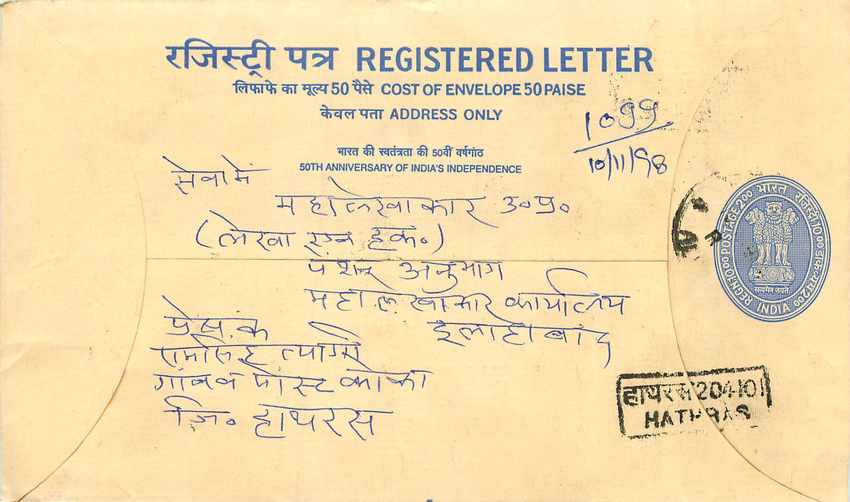 रजिस्ट्री पत्र REGISTERED LETTER
लिफाफे का मूल्य 50 पैसे COST OF ENVELOPE 50 PAISE
केवल पता ADDRESS ONLY
1099
10/11/98
भारत की स्वतंत्रता की 50वीं वर्षगांठ
50TH ANNIVERSARY OF INDIA'S INDEPENDENCE
सेवा में
महालेखाकार उ०प्र०
(लेखा एवं हक०)
पेंशन अनुभाग
महालेखाकार कार्यालय
इलाहाबाद
प्रेषक
त्यागी
पोस्ट
जि० हाथरस
भारत रजिस्ट्री 10.00 डाक 2.00
REGN 10.00 POSTAGE 2.00
सत्यमेव जयते
INDIA
हाथरस 204101
HATHRAS